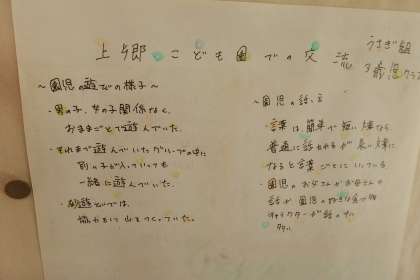 上郷こども園での交流
うさぎ組
3歳児クラス
～園児の遊びの様子～
・男の子、女の子関係なく、
おままごとで遊んでいた。
・それまで遊んでいたグループの中に
別の子が入っていっても
一緒に遊んでいた。
・砂遊びでは、
協力をして山をつくっていた。
～園児の話し方
・言葉は簡単で短い文章なら
普通に話されるが長い文章に
なると言葉がとぎれている
・園児のお父さんやお母さんの
話や園児の好きな食べ物
キャラクターが話の中に
多い